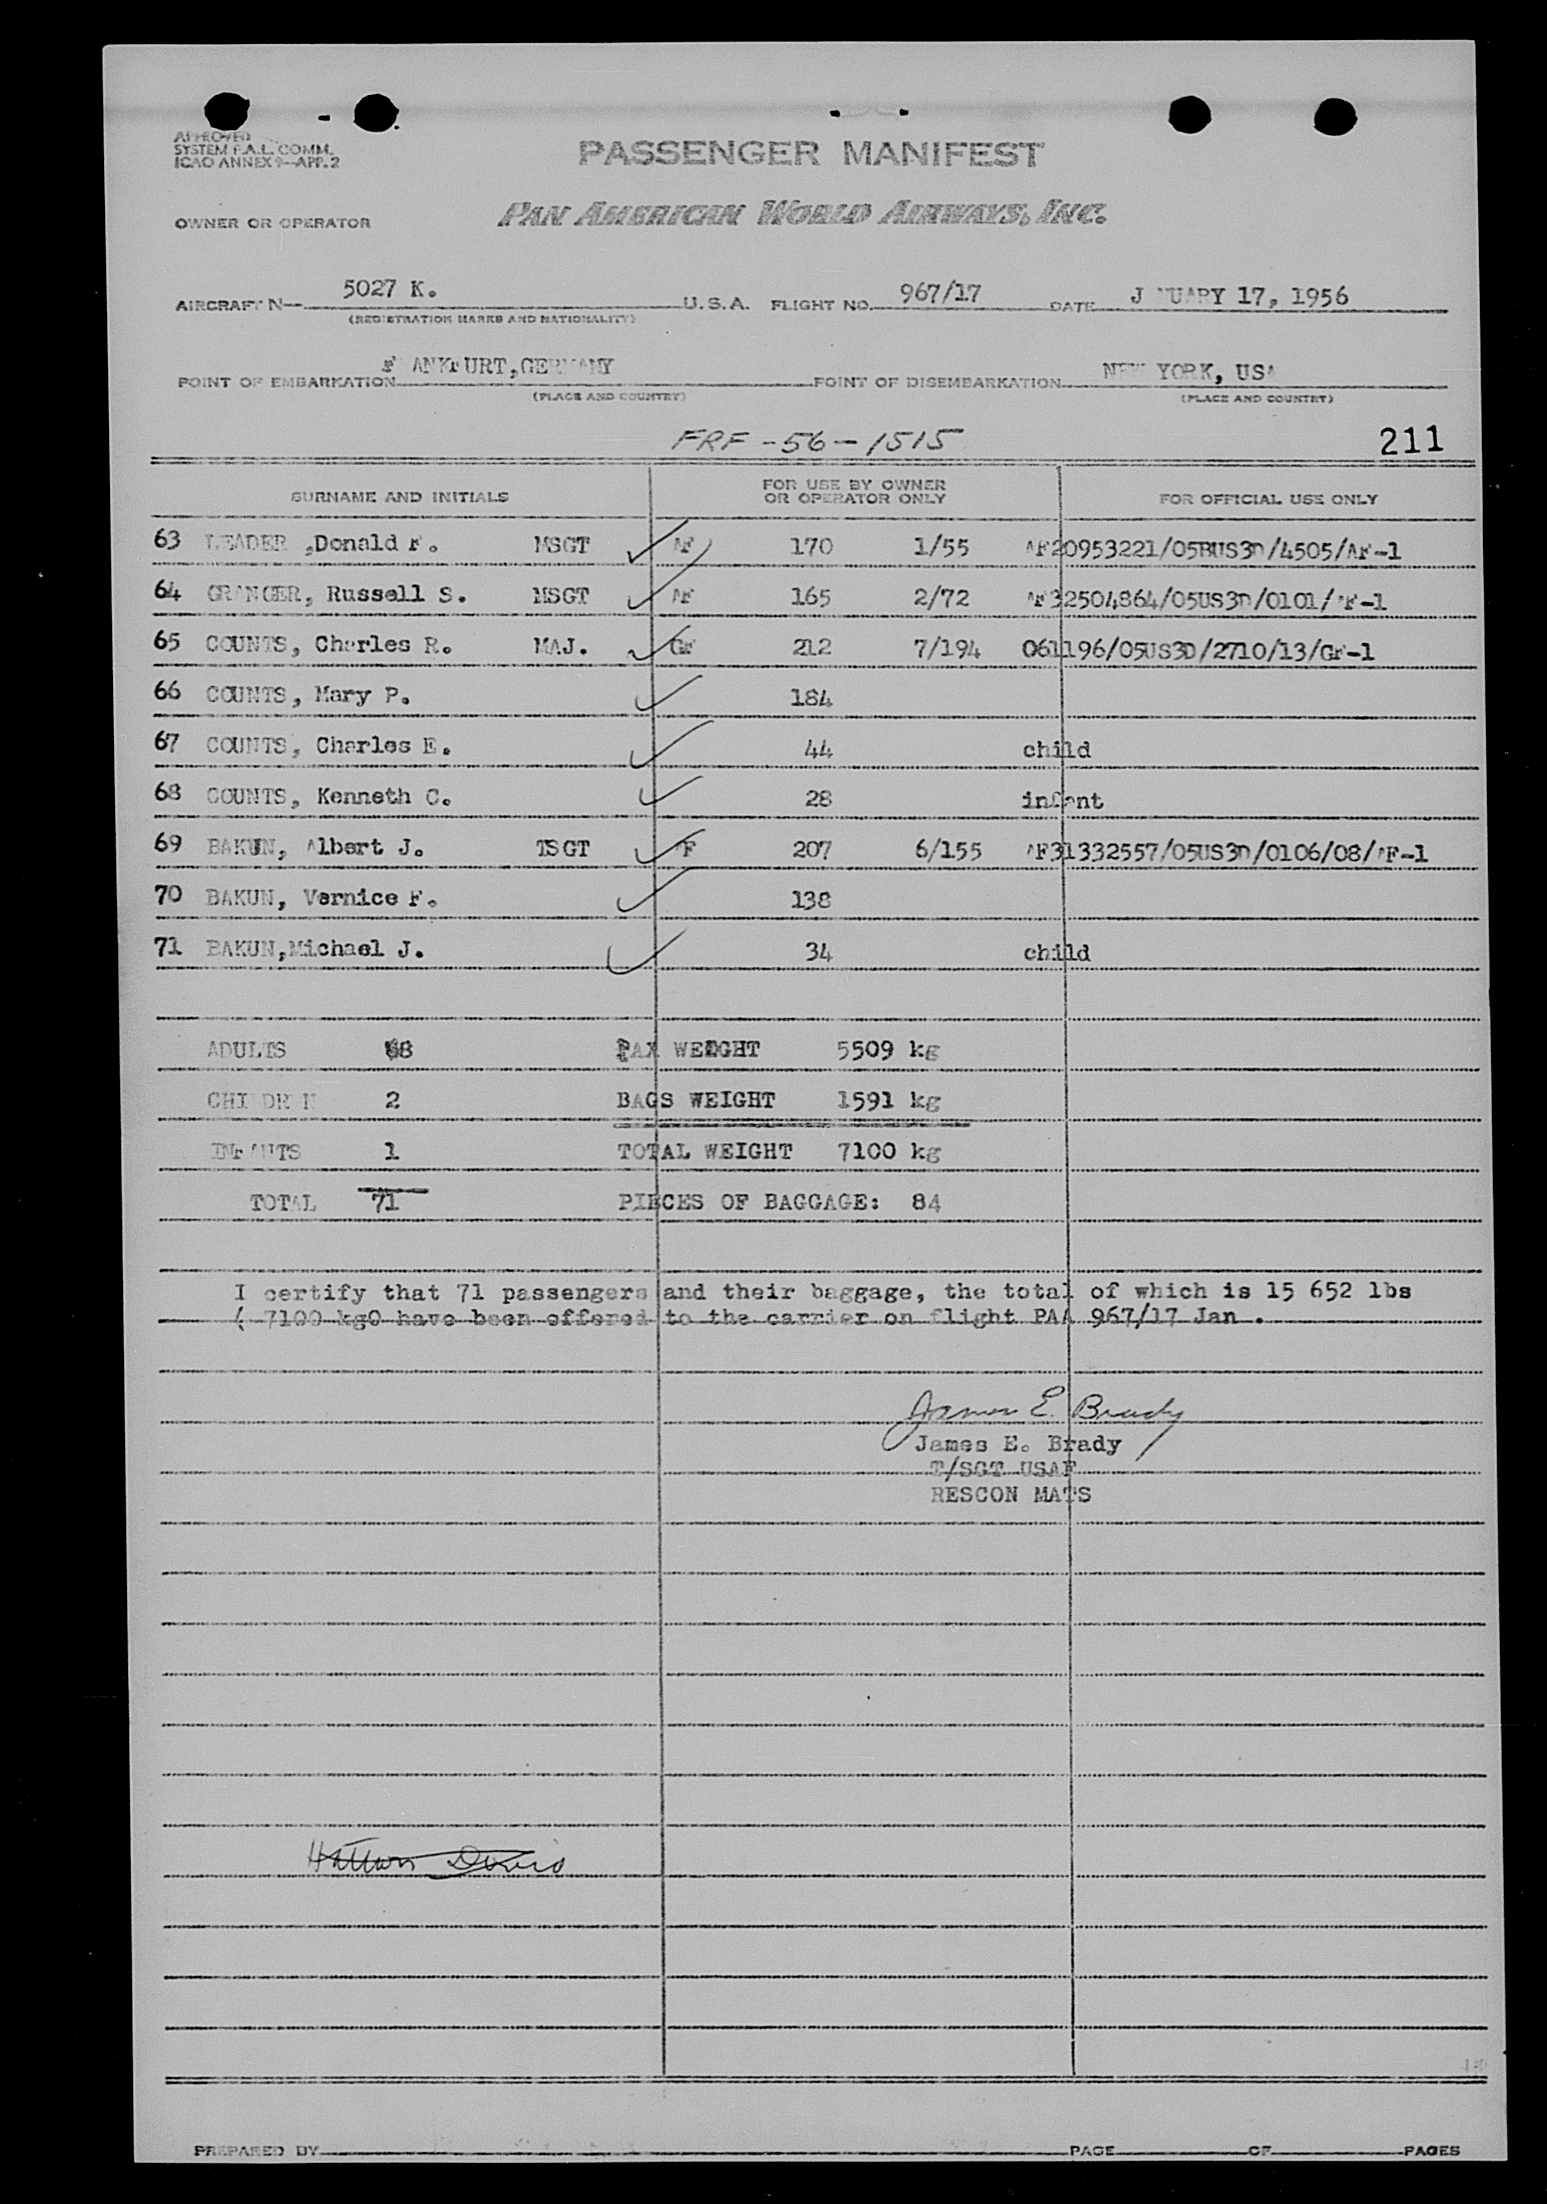 APPROVED
SYSTEM F.A.L. COMM.
ICAO ANNEX 9—APP. 2
PASSENGER MANIFEST
OWNER OR OPERATOR PAN AMERICAN WORLD AIRWAYS, INC.
AIRCRAFT N— 5027 K. U.S.A. FLIGHT NO. 967/17 DATE J NUARY 17, 1956
(REGISTRATION MARKS AND NATIONALITY)
POINT OF EMBARKATION F ANKFURT,GERMANY POINT OF DISEMBARKATION NEW YORK, USA
(PLACE AND COUNTRY) (PLACE AND COUNTRY)
FRF-56-1515 211
SURNAME AND INITIALS FOR USE BY OWNER OR OPERATOR ONLY FOR OFFICIAL USE ONLY
63 LEADER ,Donald F. MSGT AF 170 1/55 AF20953221/05BUS3D/4505/AF-1
64 GRANGER, Russell S. MSGT AF 165 2/72 AF32504864/05US3D/0101/AF-1
65 COUNTS, Charles R. MAJ. GF 212 7/194 061196/05US3D/2710/13/GF-1
66 COUNTS, Mary P. 184
67 COUNTS, Charles E. 44 child
68 COUNTS, Kenneth C. 28 infant
69 BAKUN, Albert J. TSGT AF 207 6/155 AF31332557/05US3D/0106/08/AF-1
70 BAKUN, Vernice F. 138
71 BAKUN,Michael J. 34 child
ADULTS 68 PAX WEIGHT 5509 kg
CHILDREN 2 BAGS WEIGHT 1591 kg
INFANTS 1 TOTAL WEIGHT 7100 kg
TOTAL 71 PIECES OF BAGGAGE: 84
I certify that 71 passengers and their baggage, the total of which is 15 652 lbs
( 7100 kg0 have been offered to the carrier on flight PAA 967/17 Jan .
James E. Brady
James E. Brady
T/SGT USAF
RESCON MATS
PREPARED BY PAGE OF PAGES